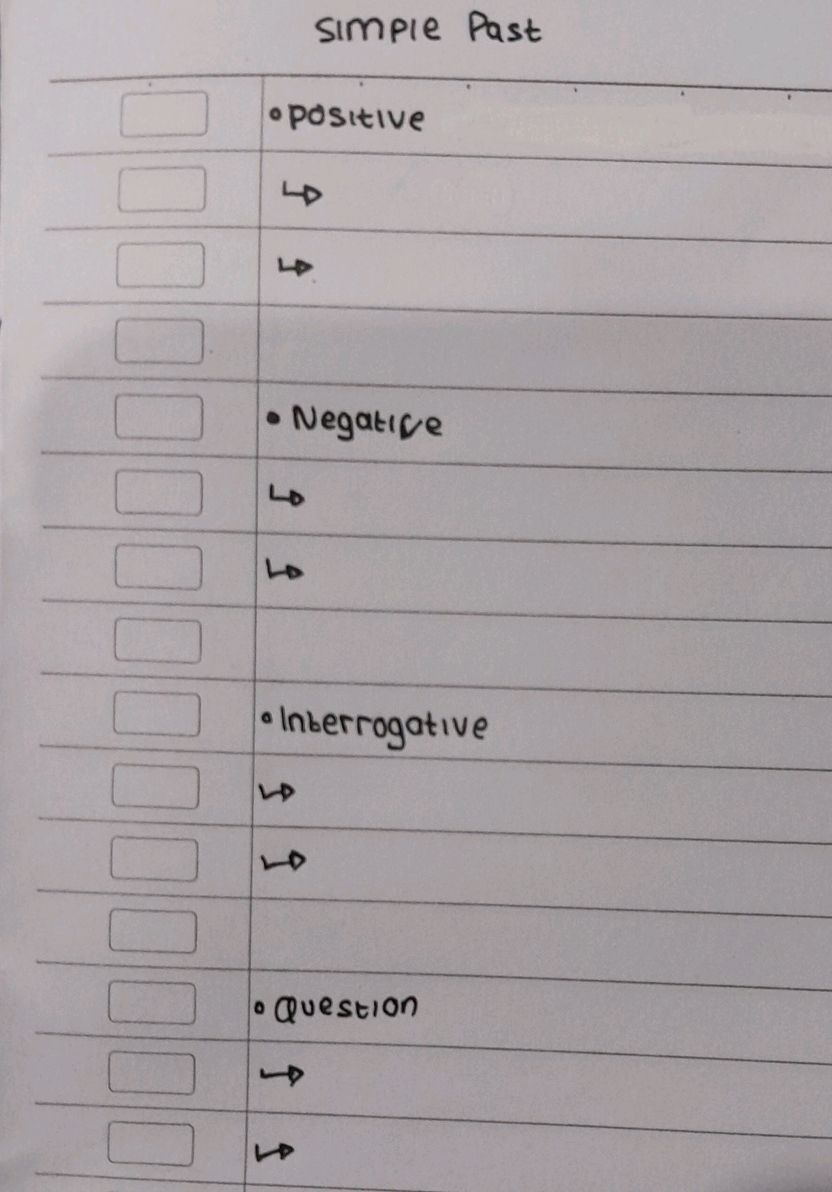 Simple Past
• positive
↳
↳
• Negative
↳
↳
• Interrogative
↳
↳
• Question
↳
↳